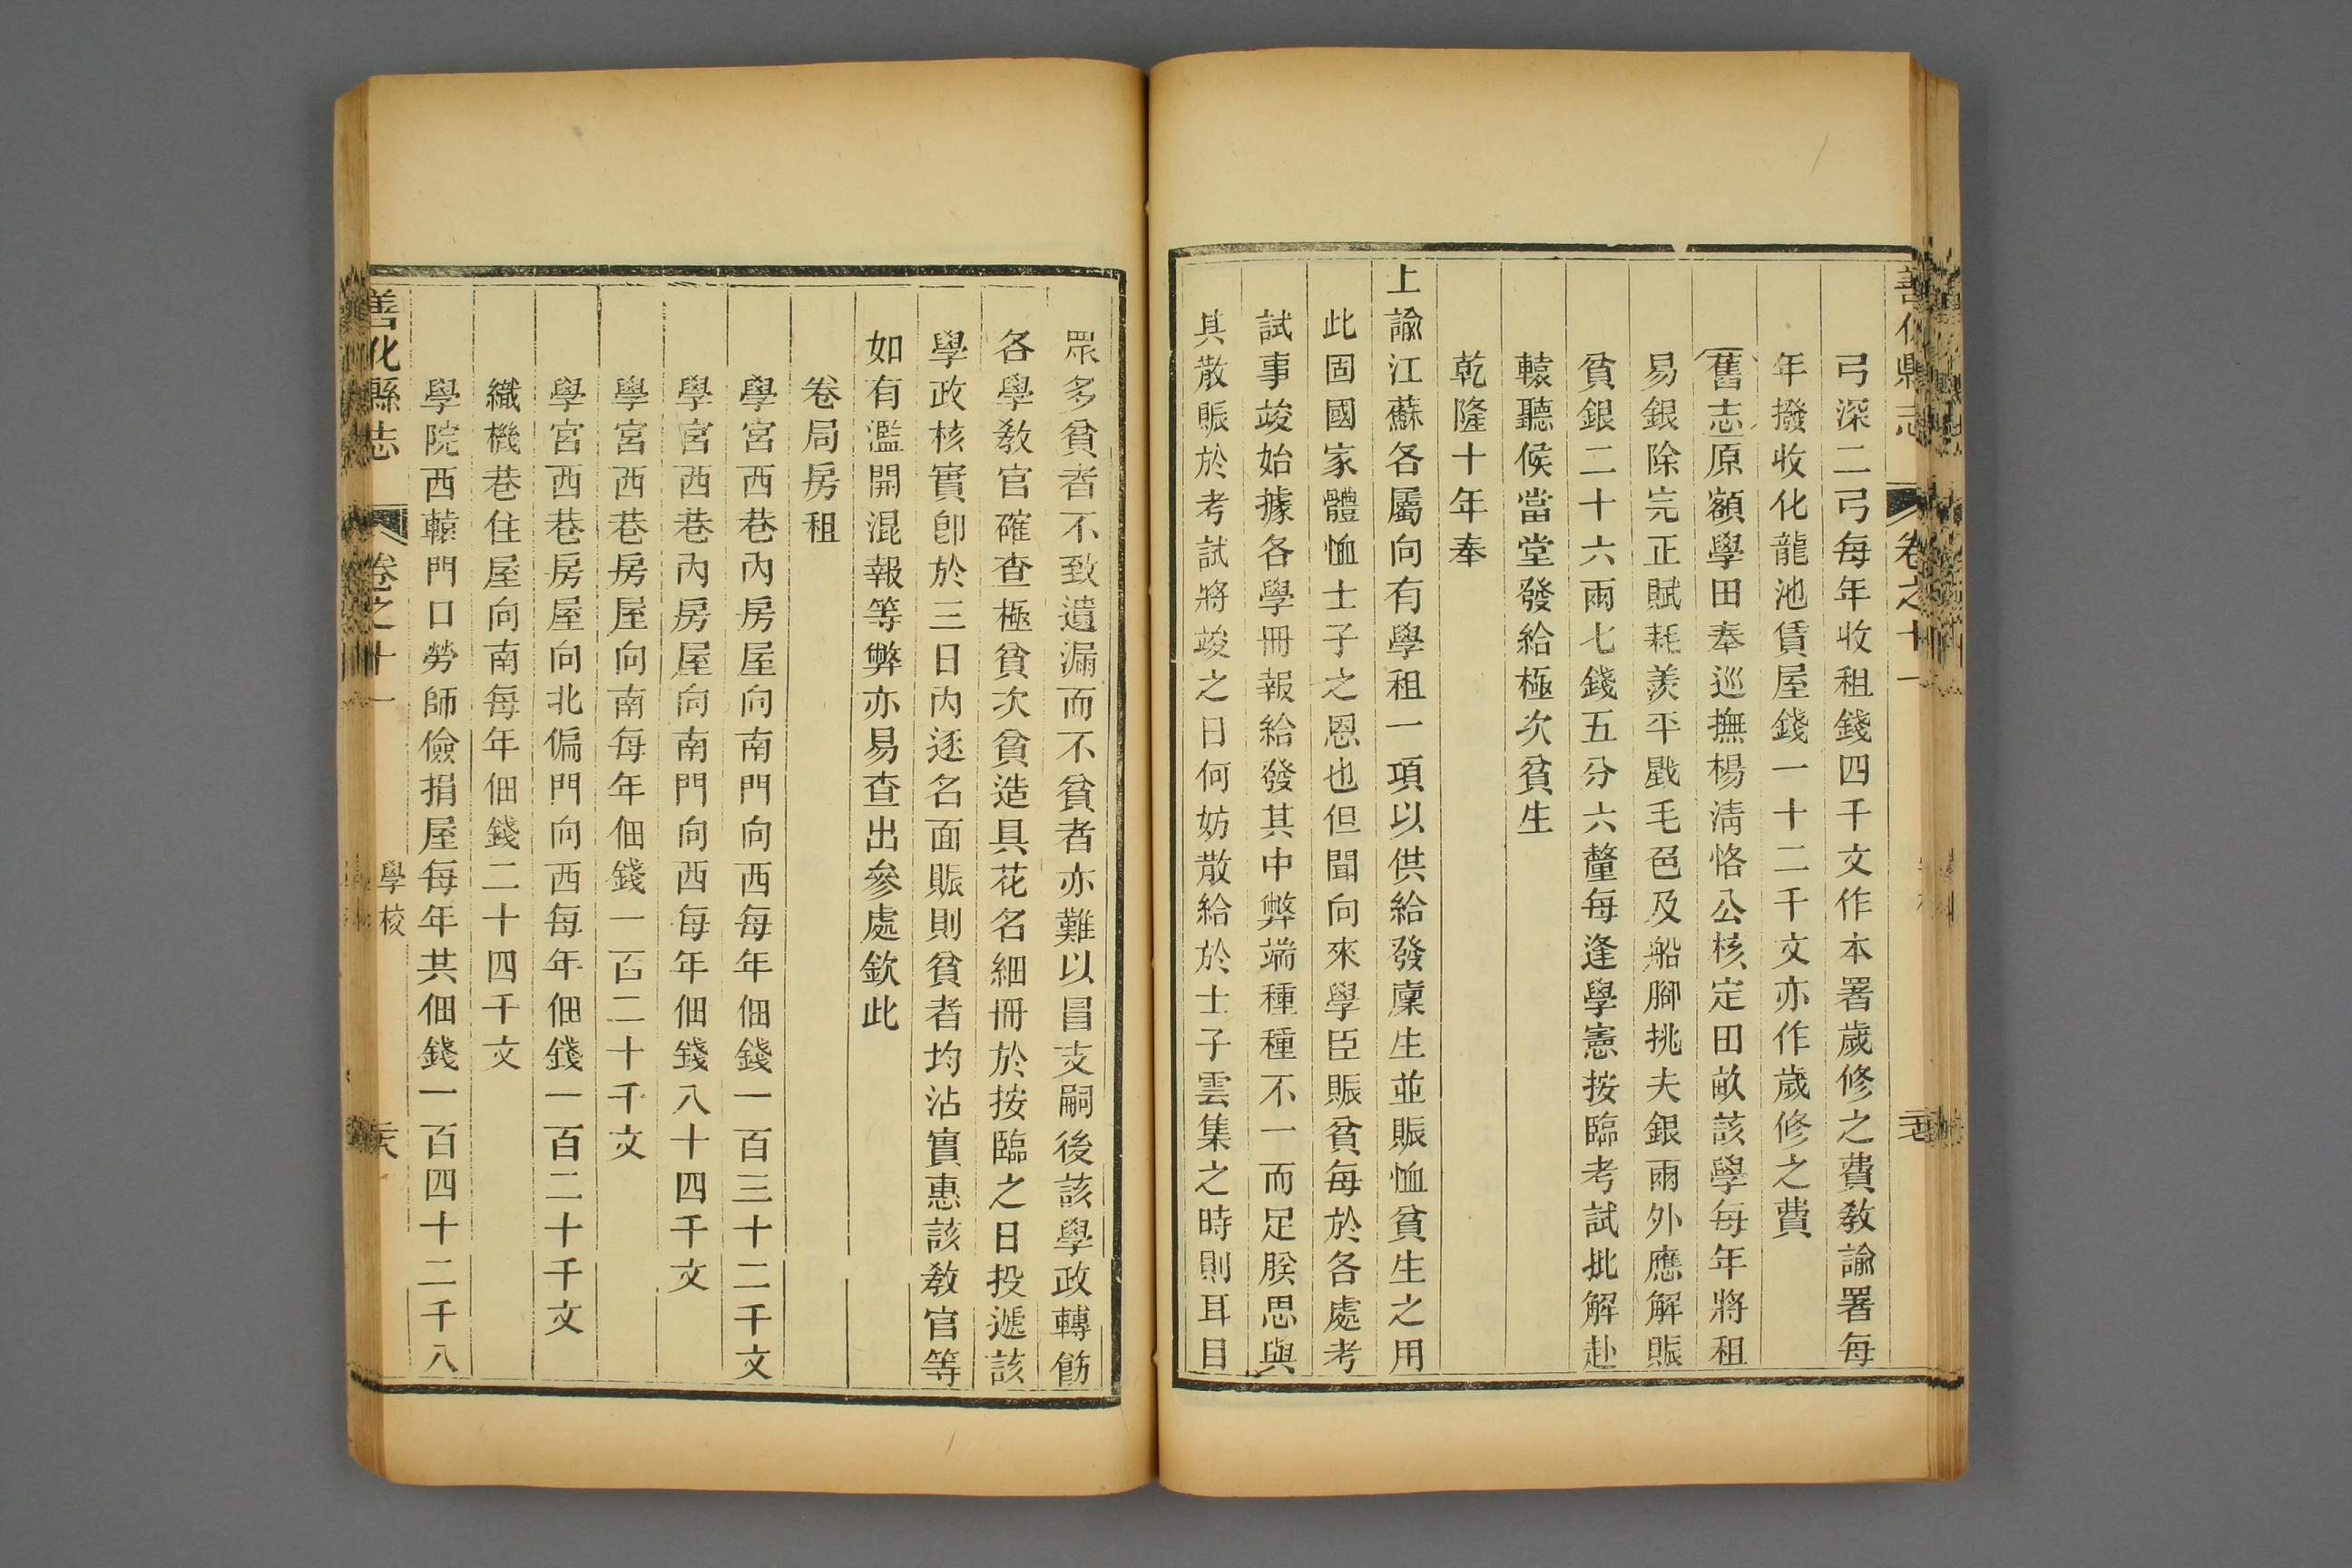 善化縣志 卷之十一
弓深二弓每年收租錢四千文作本署歲修之費敎諭署每
年撥收化龍池賃屋錢一十二千文亦作歲修之費
舊志原額學田奉巡撫楊淸恪公核定田畝該學每年將租
易銀除完正賦耗羨平戥毛色及船腳挑夫銀兩外應解賑
貧銀二十六兩七錢五分六釐每逢學憲按臨考試批解赴
轅聽候當堂發給極次貧生
乾隆十年奉
上諭江蘇各屬向有學租一項以供給發廩生並賑恤貧生之用
此固國家體恤士子之恩也但聞向來學臣賑貧每於各處考
試事竣始據各學冊報給發其中弊端種種不一而足朕思與
其散賑於考試將竣之日何妨散給於士子雲集之時則耳目
眾多貧者不致遺漏而不貧者亦難以冒支嗣後該學政轉飭
各學敎官確查極貧次貧造具花名細冊於按臨之日投遞該
學政核實卽於三日內逐名面賑則貧者均沾實惠該敎官等
如有濫開混報等弊亦易查出參處欽此
卷局房租
學宮西巷內房屋向南門向西每年佃錢一百三十二千文
學宮西巷內房屋向南門向西每年佃錢八十四千文
學宮西巷房屋向南每年佃錢一百二十千文
學宮西巷房屋向北偏門向西每年佃錢一百二十千文
織機巷住屋向南每年佃錢二十四千文
學院西轅門口勞師儉捐屋每年共佃錢一百四十二千八
善化縣志 卷之十一 學校